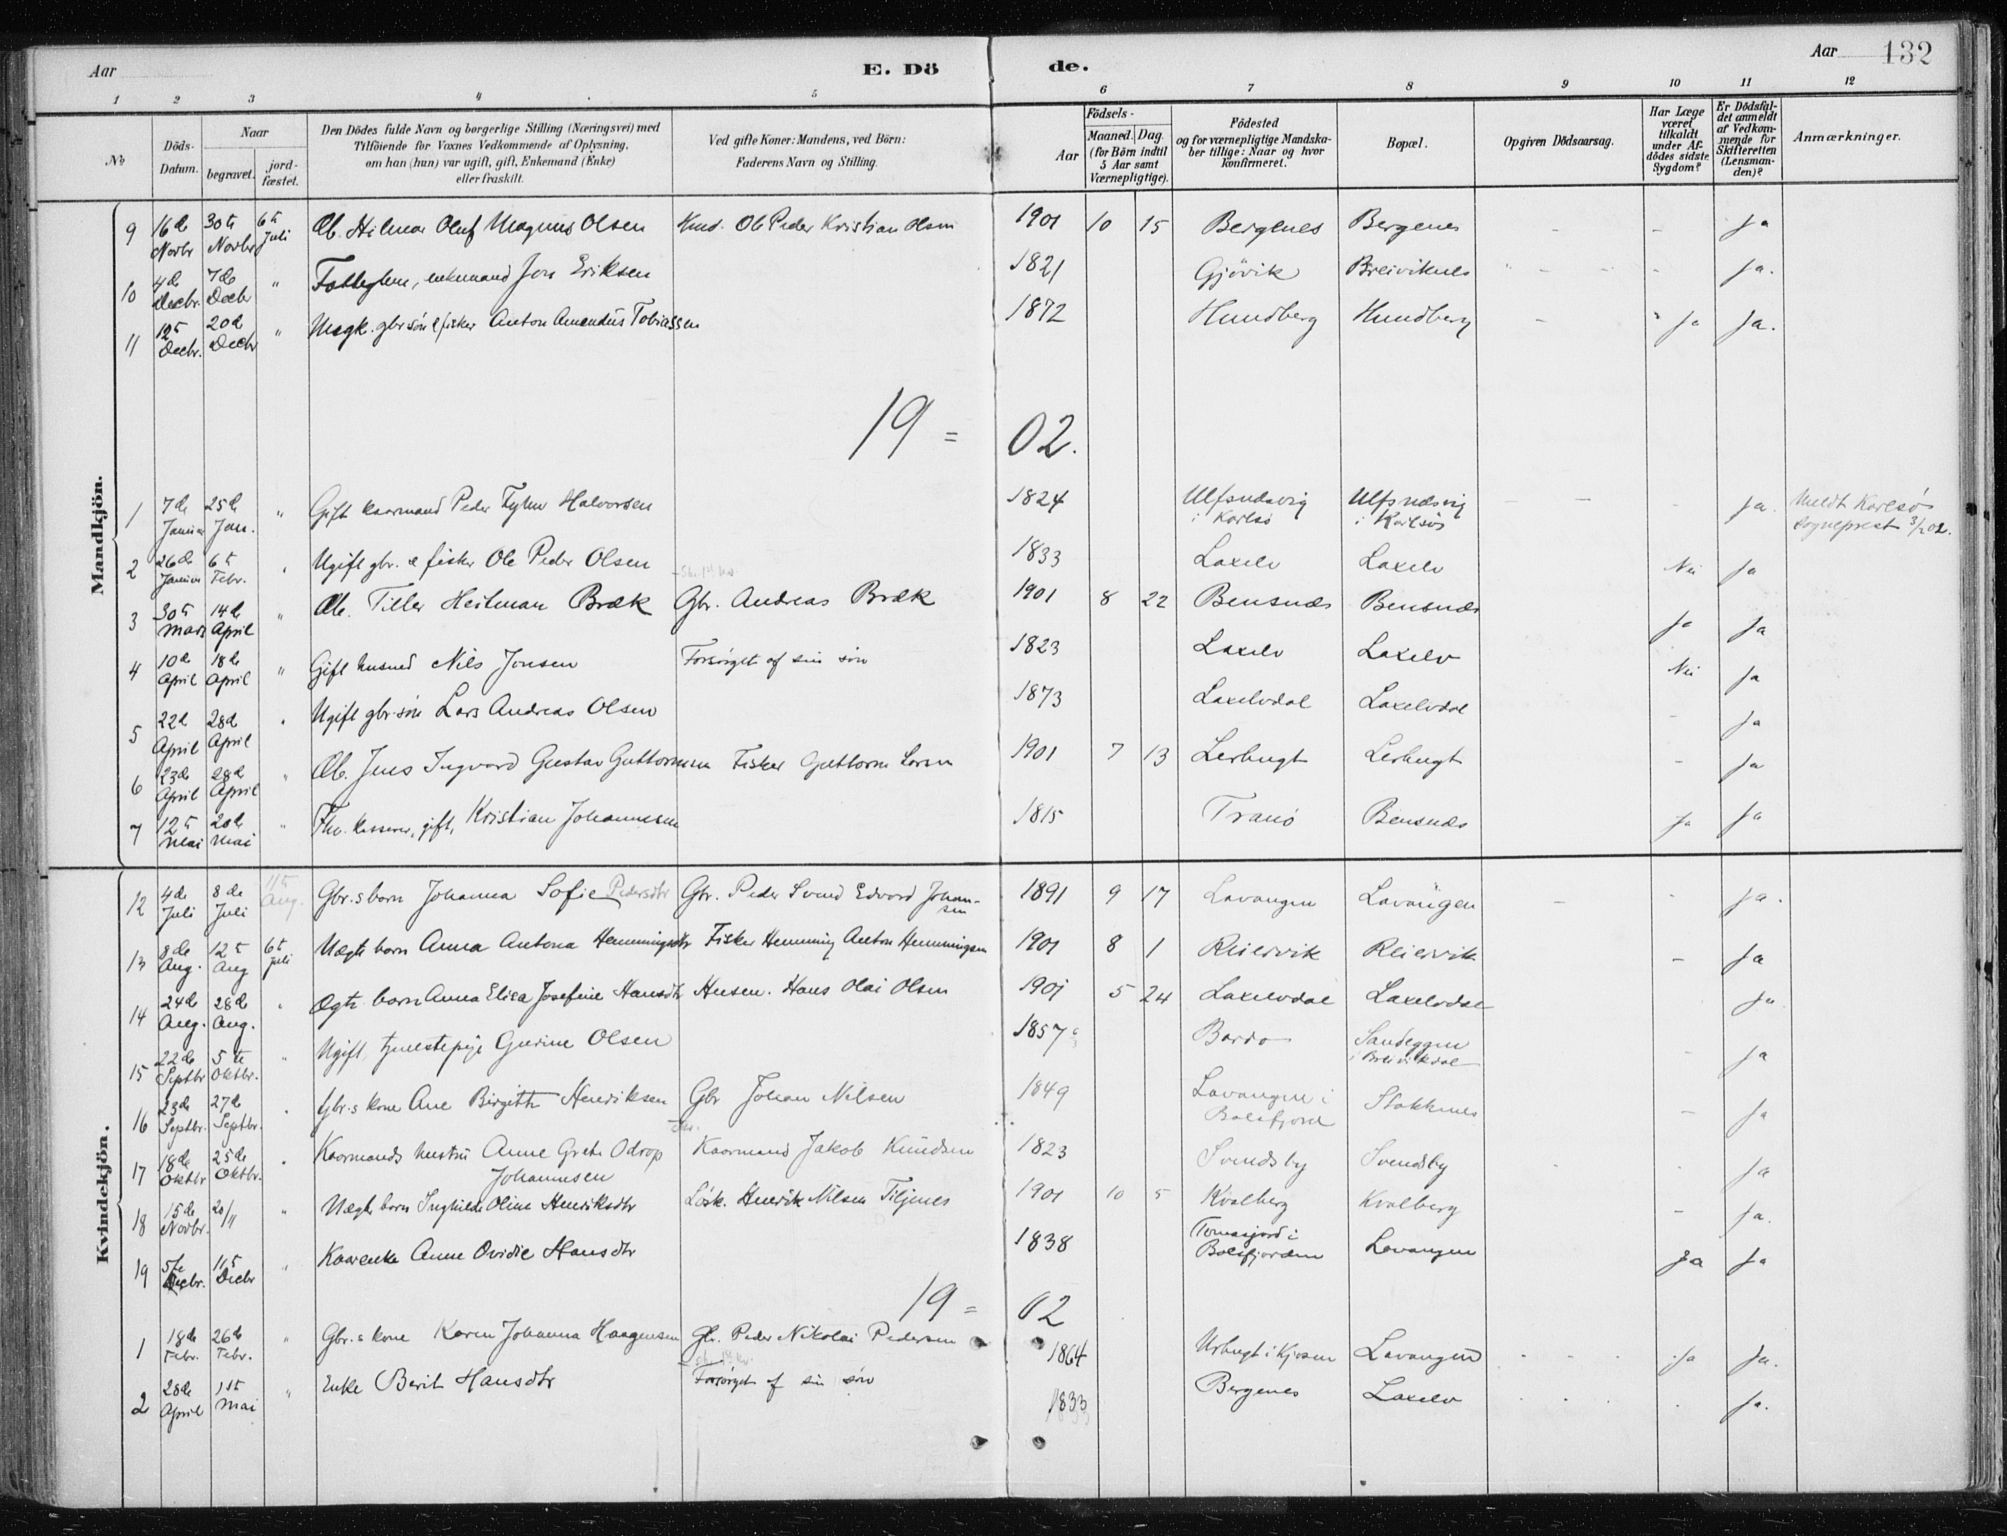 Aar
E. Dö
de.
Aar
132
1 2 3 4 5 6 7 8 9 10 11 12
No
Döds-Datum.
Naar
begravet.
jord-fæstet.
Den Dödes fulde Navn og borgerlige Stilling (Næringsvei) med
Tilföiende for Voxnes Vedkommende af Oplysning,
om han (hun) var ugift, gift, Enkemand (Enke)
eller fraskilt.
Ved gifte Koner: Mandens, ved Börn:
Faderens Navn og Stilling.
Födsels-
Aar
Maaned. Dag.
(for Börn indtil
5 Aar samt
Værnepligtige).
Födested
og for værnepligtige Mandska-
ber tillige: Naar og hvor
konfirmeret.
Bopæl.
Opgiven Dödsaarsag.
Har Læge
været
tilkaldt
under Af-
dödes sidste
Sygdom?
Er Dödsfal-
det anmeldt
af Vedkom-
mende for
Skifteretten
(Lensman-
den)?
Anmærkninger.
Mandkjön.
9 16de Novbr 30te Novbr 6te Juli Hilmar Oluf Magnus Olsen Ole Peder Kristian Olsen 1901 10 15 Bergenes Bergenes - - ja
10 4de Decbr. 7de Decbr " enkemand Jon Eriksen 1821 Gjövik Breiviknes - - ja.
11 12te Decbr. 20de Decbr " gbr søn & fisker Anton Amandus Tobiassen 1872 Hundberg Hundberg - ja ja.
19 = 02.
1 7de Januar 25de Jan. " Gift kaarmand Peder Halvorsen 1824 Ulfsnæsvig i Karlsö Ulfsnæsvig i Karlsös - - ja. Meldt Karlsö sogneprest 3/2 02.
2 26de Januar 6te Febr. " Ugift gbr. & fisker Ole Peder Olsen 1833 Laxelv Laxelv Nei ja
3 30te Mars 14de April " Tiller Heitman Bræk Gbr. Andreas Bræk 1901 8 22 Bensnæs Bensnæs ja ja
4 10de April 18de April " Gift husmd Nils Jonsen Forsørget af sin søn 1823 Laxelv Laxelv Nei ja
5 22de April 28de April " Ugift gbr. søn Lars Andreas Olsen 1873 Laxelvdal Laxelvdal - ja
6 23de April 28de April " Jens Ingvard Gustav Guttormsen Fisker Guttorm Larsen 1901 7 13 Lerbugt Lerbugt - ja
7 12te Mai 20de Mai " gift, Kristian Johannesen 1815 Tranö Bensnæs ja ja
Kvindekjön.
12 4de Juli 8de Juli 11te Aug. Gbr.s barn Johanna Sofie Pedersdtr Gbr. Peder Svend Edvard Johansen 1891 9 17 Lavangen Lavangen - - ja.
13 8de Aug. 12te Aug 6te Juli Uægte barn Anna Antona Hemmingsdtr Fisker Hemming Anton Hemmingsen 1901 8 1 Reiervik Reiervik - ja
14 24de Aug. 28de Aug. " Ægte barn Anna Elisa Josefine Hansdtr Hans Olai Olsen 1901 5 24 Laxelvdal Laxelvdal ja
15 22de Septbr 5te Oktbr. " Ugift, tjenestepige Gurine Olsen 1857 Bardo Sandeggen i Breivikdal - ja
16 23de Septbr. 27de Septbr. " Gbr.s kone Ane Birgitte Henriksen Gbr Johan Nilsen 1849 Lavangen i Balsfjord Stokknes - ja
17 18de Oktbr 25de Oktbr. " Kaarmands hustru Anne Grete Odrop Johannesen Kaarmand Jakob Knudsen 1823 Svendsby Svendsby - ja
18 15de Novbr. 20/11 " Uægte barn Inghilda Oline Henriksdtr Løsk. Henrik Nilsen Tiljenes 1901 10 5 Kvalberg Kvalberg - ja.
19 5te Decbr. 11te Decbr " Kaarenke Anne Ovidie Hansdtr 1838 Tomasjord i Balsfjorden Lavangen ja ja
19 = 02
1 18de Febr. 26de Febr. " Gbr.s kone Karen Johanna Haagensen Gbr. Peder Nikolai Pedersen 1864 Urbugt i Kjosen Lavangen - - ja ja.
2 28de April 11te Mai " Enke Berit Hansdtr Forsørget af sin søn 1833 Bergenes Laxelv ja.